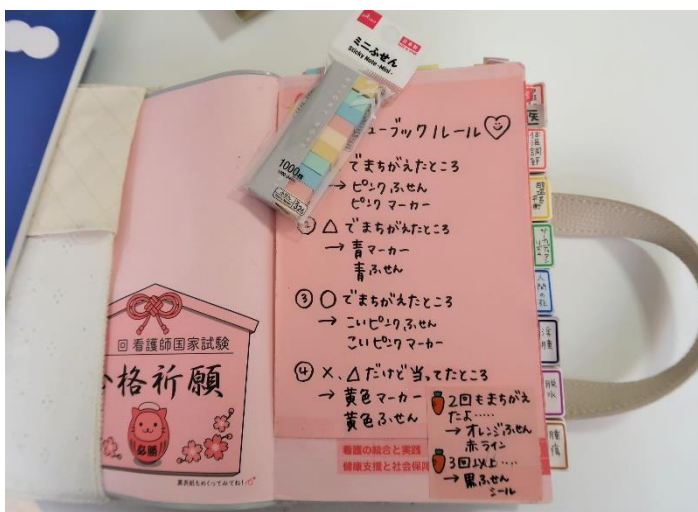 ミニふせん
Sticky Note -Mini-
1000枚
日本製
ューブック ルール
でまちがえたところ
→ ピンクふせん
ピンク マーカー
② △でまちがえたところ
→ 青マーカー
青ふせん
③ ○でまちがえたところ
→ こいピンクふせん
こいピンクマーカー
④ ×、△だけど当ってたところ
→ 黄色マーカー
黄色ふせん
2回もまちがえ
たよ……
→ オレンジふせん
赤ライン
3回以上…
→ 黒ふせん
シール
看護の統合と実践
健康支援と社会保障
回 看護師国家試験
格祈願
必勝
裏表紙もめくってみてね!
医
体温調節
サーカディアン
リズム
人間の死
浮腫
脱水
腫瘍